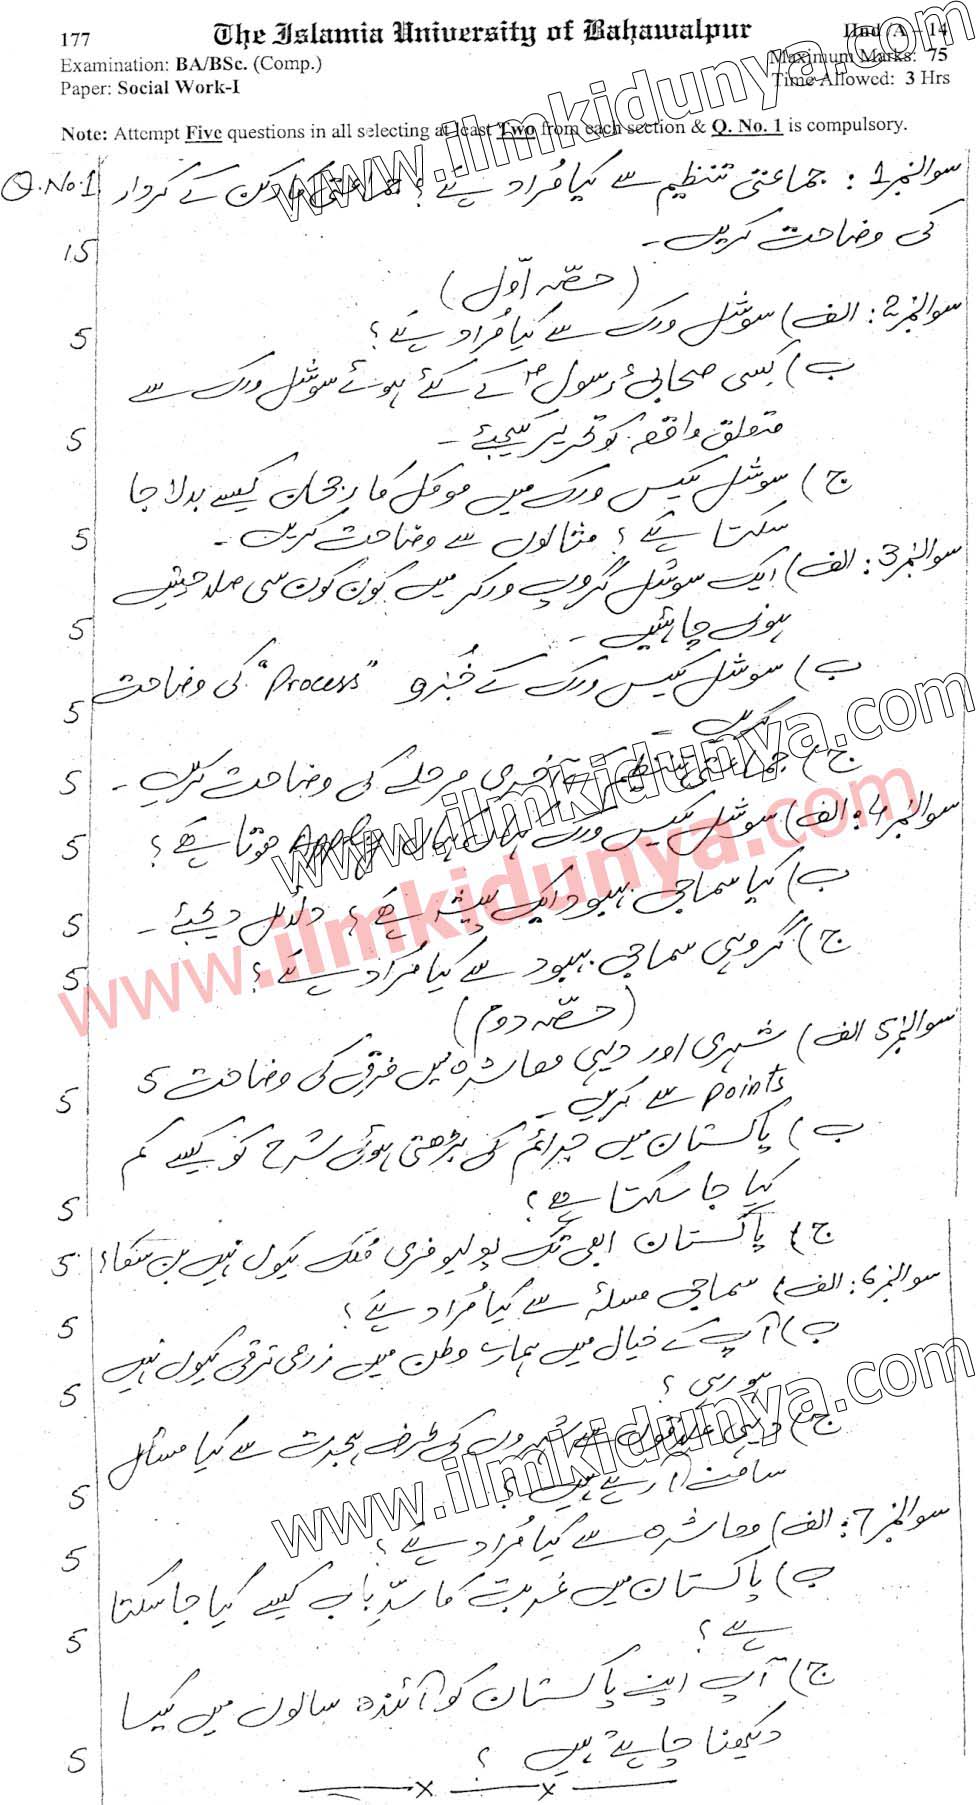 177
The Islamia University of Bahawalpur
IInd -A – 14
Examination: BA/BSc. (Comp.)
Maximum Marks: 75
Paper: Social Work-I
Time Allowed: 3 Hrs
Note: Attempt Five questions in all selecting at least Two from each section & Q. No. 1 is compulsory.
Q.No.1 سوالنمبر1: جماعتی تنظیم سے کیا مُراد ہے؟ جماعتی کارکن کے کردار
کی وضاحت کریں۔ 15
(حصّہ اوّل)
سوالنمبر2: الف) سوشل ورک سے کیا مُراد ہے؟ 5
ب) کسی صحابیٔ رسولؐ کے کئے ہوئے سوشل ورک سے
متعلق واقعہ کو تحریر کیجئے۔ 5
ج) سوشل کیس ورک میں موکل کا رجحان کیسے بدلا جا
سکتا ہے؟ مثالوں سے وضاحت کریں۔ 5
سوالنمبر3: الف) ایک سوشل گروپ ورکر میں کون کون سی صلاحیتیں
ہونی چاہئیں۔ 5
ب) سوشل کیس ورک کے جُزو "Process" کی وضاحت
کریں۔ 5
ج) جماعتی تنظیم کے آخری مرحلے کی وضاحت کریں۔ 5
سوالنمبر4: الف) سوشل کیس ورک کہاں کہاں Apply ہوتا ہے؟ 5
ب) کیا سماجی بہبود ایک پیشہ ہے؟ دلائل دیجئے۔ 5
ج) گروہی سماجی بہبود سے کیا مُراد ہے؟ 5
(حصّہ دوم)
سوالنمبر5 الف) شہری اور دیہی معاشرہ میں فرق کی وضاحت 5
points سے کریں۔ 5
ب) پاکستان میں جرائم کی بڑھتی ہوئی شرح کو کیسے کم
کیا جا سکتا ہے؟ 5
ج) پاکستان ابھی تک پولیو فری مُلک کیوں نہیں بن سکا؟ 5
سوالنمبر6: الف) سماجی مسئلہ سے کیا مُراد ہے؟ 5
ب) آپ کے خیال میں ہمارے وطن میں زرعی ترقی کیوں نہیں
ہو رہی؟ 5
ج) دیہی علاقوں سے شہروں کی طرف ہجرت سے کیا مسائل
سامنے آ رہے ہیں؟ 5
سوالنمبر7: الف) معاشرہ سے کیا مُراد ہے؟ 5
ب) پاکستان میں غربت کا سدِّباب کیسے کیا جا سکتا
ہے؟ 5
ج) آپ اپنے پاکستان کو آئندہ سالوں میں کیسا
دیکھنا چاہتے ہیں؟ 5
www.ilmkidunya.com
www.ilmkidunya.com
www.ilmkidunya.com
www.ilmkidunya.com